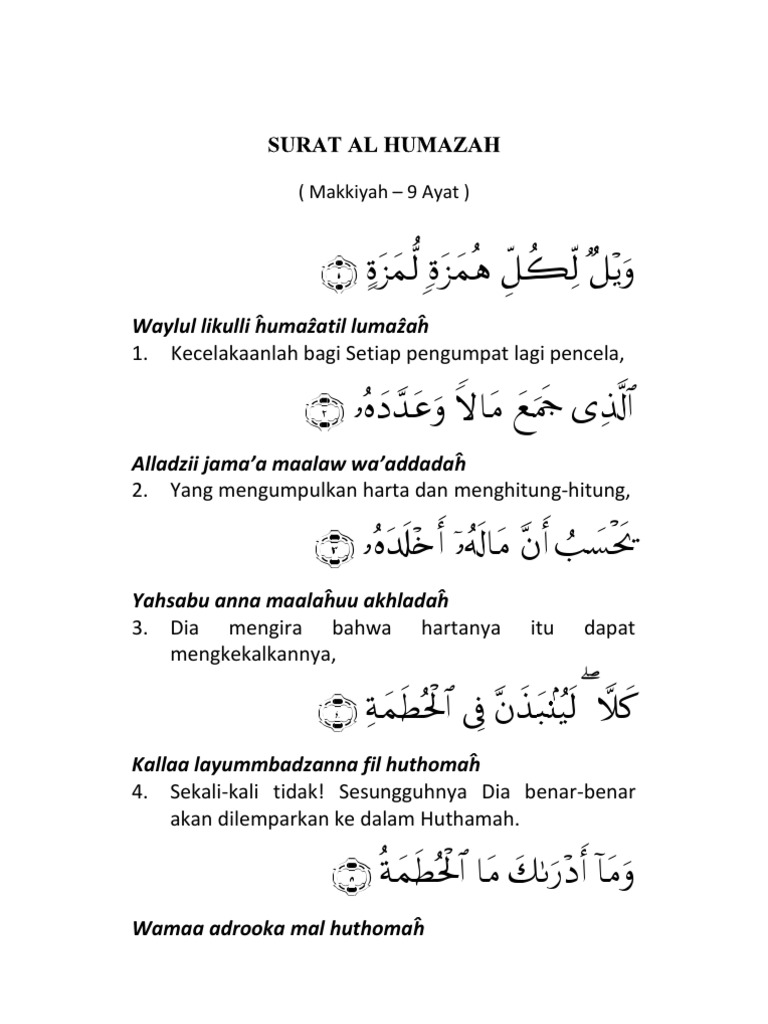 SURAT AL HUMAZAH
( Makkiyah – 9 Ayat )
وَيْلٌ لِّكُلِّ هُمَزَةٍ لُّمَزَةٍ ﴿١﴾
Waylul likulli ĥumaẑatil lumaẑaĥ
1. Kecelakaanlah bagi Setiap pengumpat lagi pencela,
ٱلَّذِى جَمَعَ مَالاً وَعَدَّدَهُۥ ﴿٢﴾
Alladzii jama’a maalaw wa’addadaĥ
2. Yang mengumpulkan harta dan menghitung-hitung,
يَحْسَبُ أَنَّ مَالَهُۥٓ أَخْلَدَهُۥ ﴿٣﴾
Yahsabu anna maalaĥuu akhladaĥ
3. Dia mengira bahwa hartanya itu dapat
mengkekalkannya,
كَلَّا ۖ لَيُنۢبَذَنَّ فِى ٱلْحُطَمَةِ ﴿٤﴾
Kallaa layummbadzanna fil huthomaĥ
4. Sekali-kali tidak! Sesungguhnya Dia benar-benar
akan dilemparkan ke dalam Huthamah.
وَمَآ أَدْرَىٰكَ مَا ٱلْحُطَمَةُ ﴿٥﴾
Wamaa adrooka mal huthomaĥ